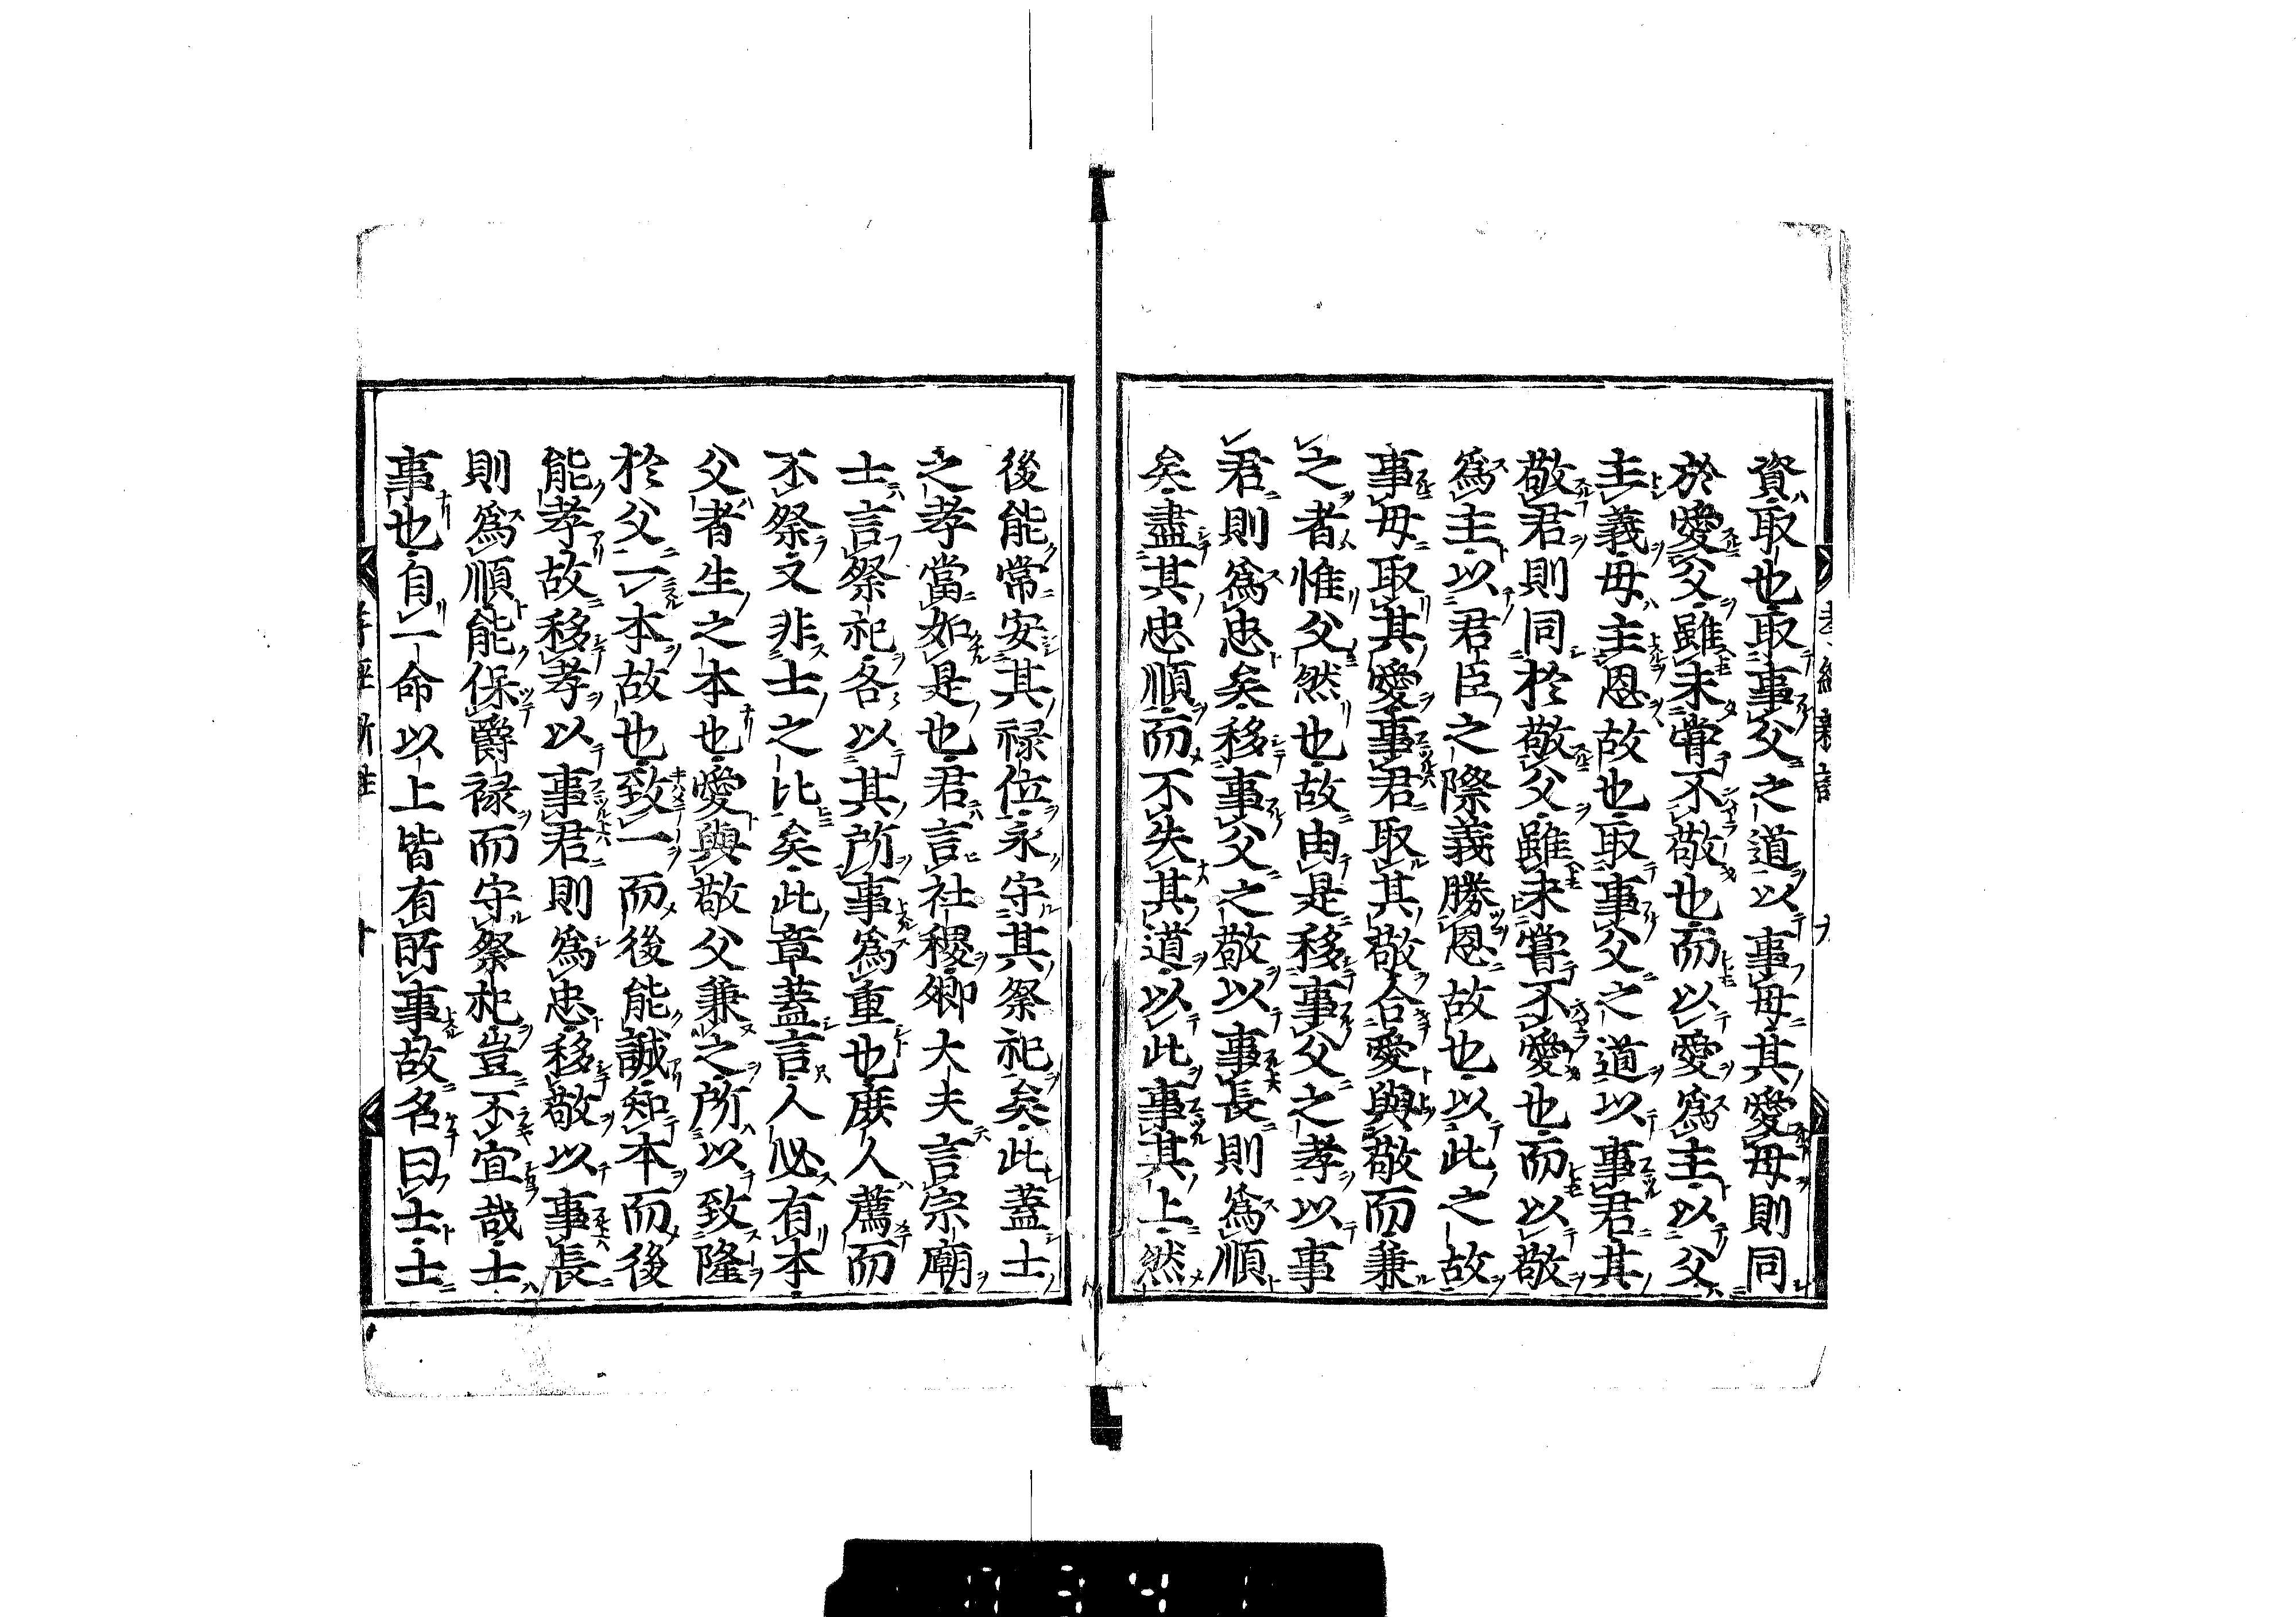 資取也取事父之道以事母其愛母則同
於愛父雖未甞不敬也而以愛爲主以父
主義母主恩故也取事父之道以事君其
敬君則同於敬父雖未嘗不愛也而以敬
爲主以君臣之際義勝恩故也以此之故
事母取其愛事君取其敬合愛與敬而兼
之者惟父然也故由是移事父之孝以事
君則爲忠矣移事父之敬以事長則爲順
矣盡其忠順而不失其道以此事其上然
後能常安其禄位永守其祭祀矣此蓋士
之孝當如是也君言社稷卿大夫言宗廟
士言祭祀各以其所事爲重也庶人薦而
不祭又非士之比矣此章蓋言人必有本
父者生之本也愛與敬父兼之所以致隆
於父一本故也致一而後能誠知本而後
能孝故移孝以事君則爲忠移敬以事長
則爲順能保爵禄而守祭祀豈不宜哉士
事也自一命以上皆有所事故名曰士士